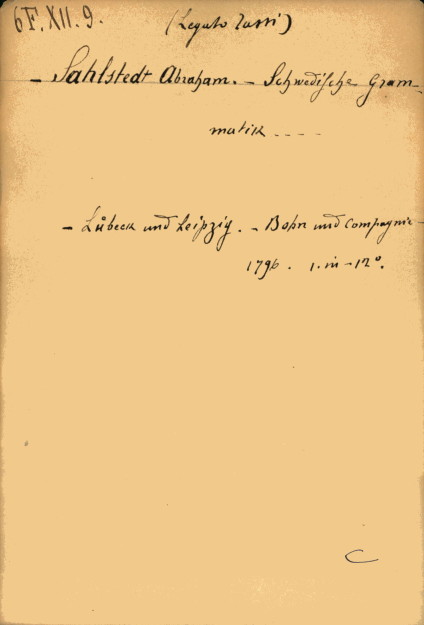 6F.XII.9. (Legato Tassi)
- Sahlstedt Abraham. - Schwedische Gram-
matik - - - -
- Lübeck und Leipzig. - Bohn und Compagnie -
1796. 1. in - 12º.
C